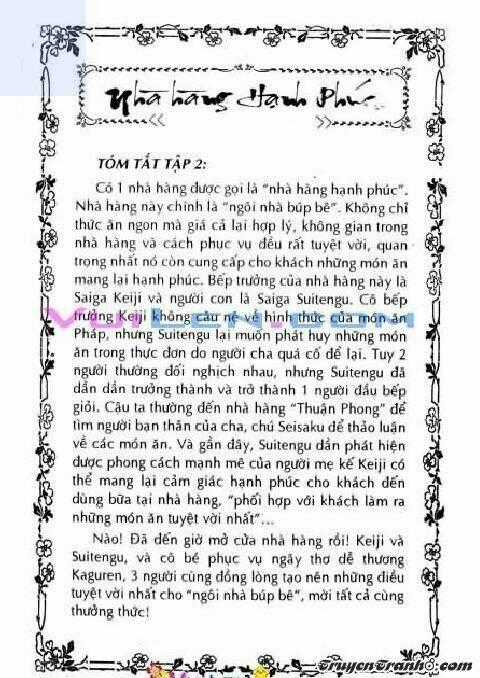 Nhà hàng Hạnh Phúc
TÓM TẮT TẬP 2:
Có 1 nhà hàng được gọi là “nhà hàng hạnh phúc”.
Nhà hàng này chính là “ngôi nhà búp bê”. Không chỉ
thức ăn ngon mà giá cả lại hợp lý, không gian trong
nhà hàng và cách phục vụ đều rất tuyệt vời, quan
trọng nhất nó còn cung cấp cho khách những món ăn
mang lại hạnh phúc. Bếp trưởng của nhà hàng này là
Saiga Keiji và người con là Saiga Suitengu. Cô bếp
trưởng Keiji không câu nệ về hình thức của món ăn
Pháp, nhưng Suitengu lại muốn phát huy những món
ăn trong thực đơn do người cha quá cố để lại. Tuy 2
người thường đối nghịch nhau, nhưng Suitengu đã
dần dần trưởng thành và trở thành 1 người đầu bếp
giỏi. Cậu ta thường đến nhà hàng “Thuận Phong” để
tìm người bạn thân của cha, chú Seisaku để thảo luận
về các món ăn. Và gần đây, Suitengu dần phát hiện
được phong cách mạnh mẽ của người mẹ kế Keiji có
thể mang lại cảm giác hạnh phúc cho khách đến
dùng bữa tại nhà hàng, “phối hợp với khách làm ra
những món ăn tuyệt vời nhất”...
Nào! Đã đến giờ mở cửa nhà hàng rồi! Keiji và
Suitengu, và cô bé phục vụ ngây thơ dễ thương
Kaguren, 3 người cùng đồng lòng tạo nên những điều
tuyệt vời nhất cho “ngôi nhà búp bê”, mời tất cả cùng
thưởng thức!
TruyenTranh8.com